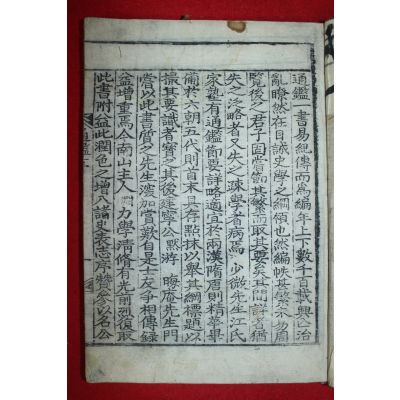 通鑑一書易紀傳而爲編年上下數千百載興亡治
亂瞭然在目誠史學之綱領也然編帙甚繁不易周
覽後之君子固嘗節其繁而取其要矣其間詳者猶
失之泛略者又失之疎學者病焉少微先生江氏
家塾有通鑑節要詳略適宜於兩漢隋唐則精華畢
備於六朝五代則首末具存點抹以擧其綱標題以
撮其要識者寶之其後建寧公默游晦庵先生門
嘗以此書質之先生深加賞歎自是士友爭相傳錄
益增重焉今南山主人淵力學淸脩有光前烈復取
此書附益而潤色之增入諸史表志序贊參以名公